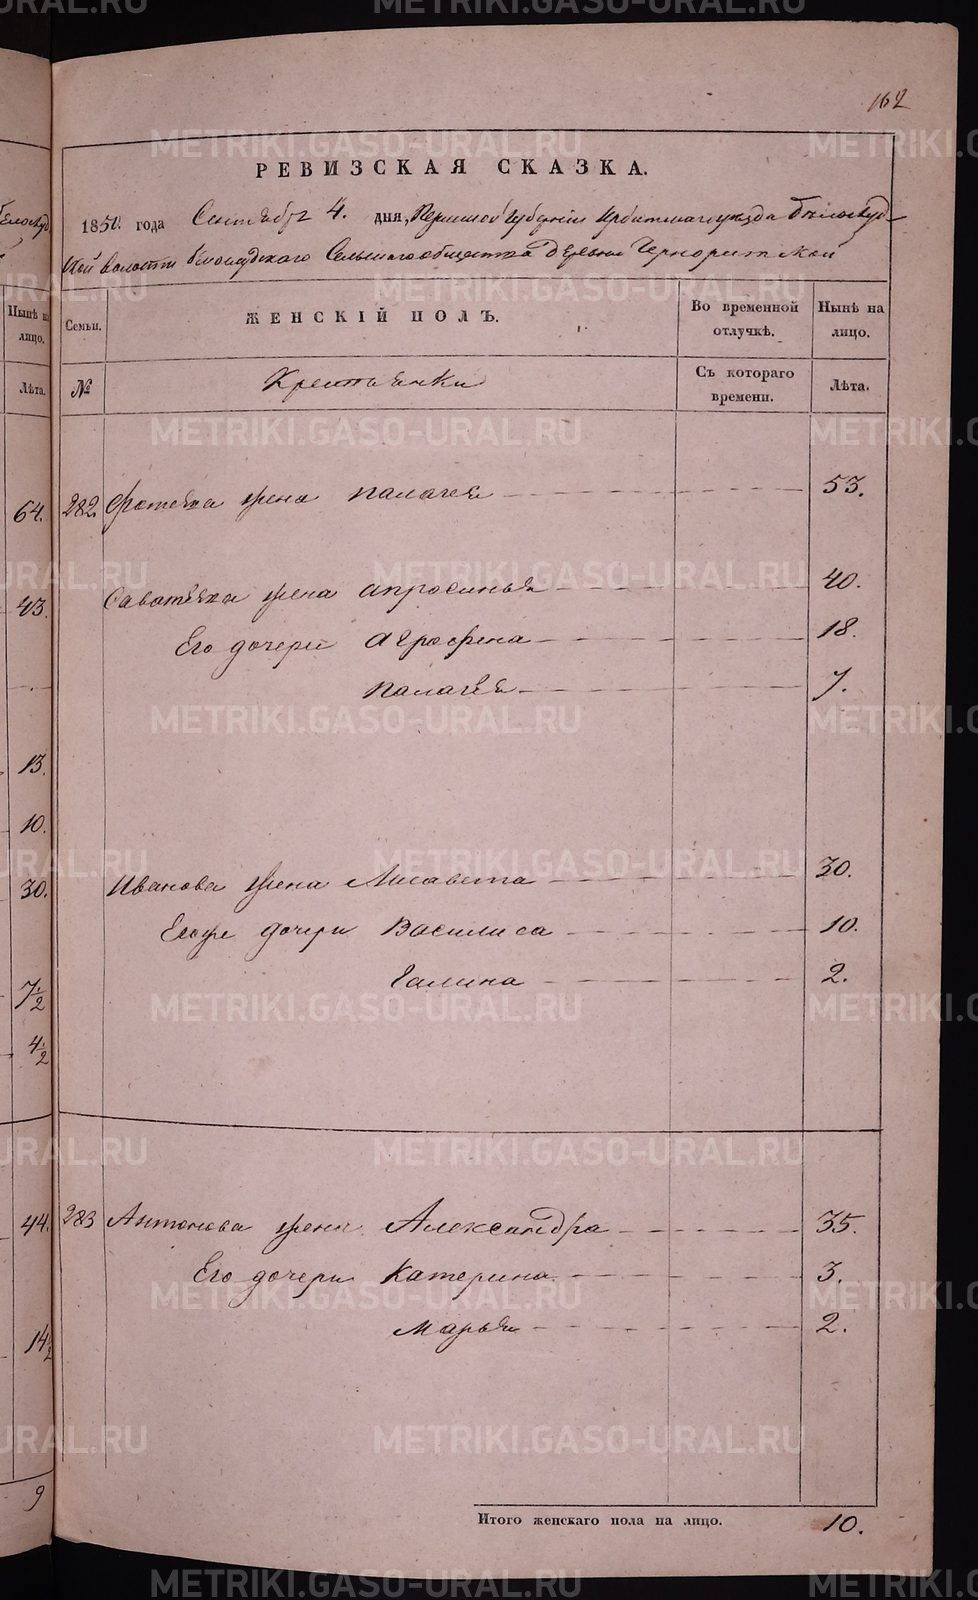 162
РЕВИЗСКАЯ СКАЗКА.
1850 года Сентября 4. дня, Пермской Губернии Ирбитскаго уезда Белослуд-
ской волости Белослудского Сельского общества деревни
Семьи. ЖЕНСКІЙ ПОЛЪ. Во временной отлучкѣ. Нынѣ на лицо.
№ Крестьянки Съ котораго времени. Лѣта.
282. Фотеева жена Палагея 53.
Саватеева жена Апросинья 40.
Его дочери Агрофена 18.
Палагея 7.
Иванова жена Лисавета 30.
Егоже дочери Василиса 10.
Галина 2.
283 Антонова жена Александра 35.
Его дочери Катерина 3.
Марья 2.
Итого женскаго пола на лицо. 10.
Нынѣ на лицо.
Лѣта.
64.
43.
13.
10.
30.
7 1/2
4 1/2
44.
14 1/2
9
METRIKI.GASO-URAL.RU